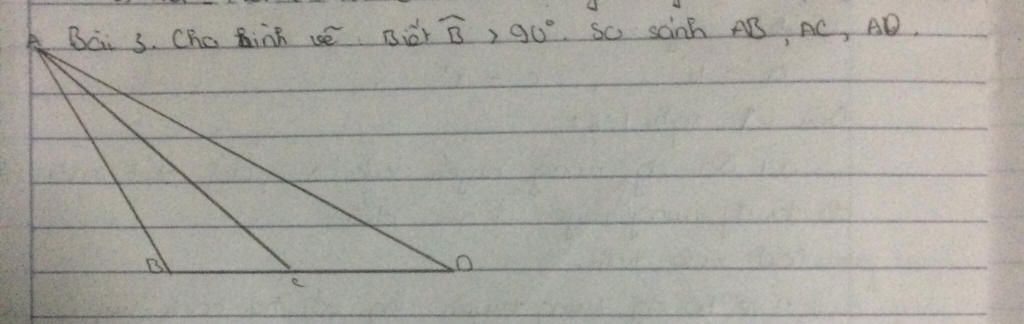 A Bài 3. Cho hình vẽ Biết B̂ > 90°. So sánh AB, AC, AD.
B
C
D